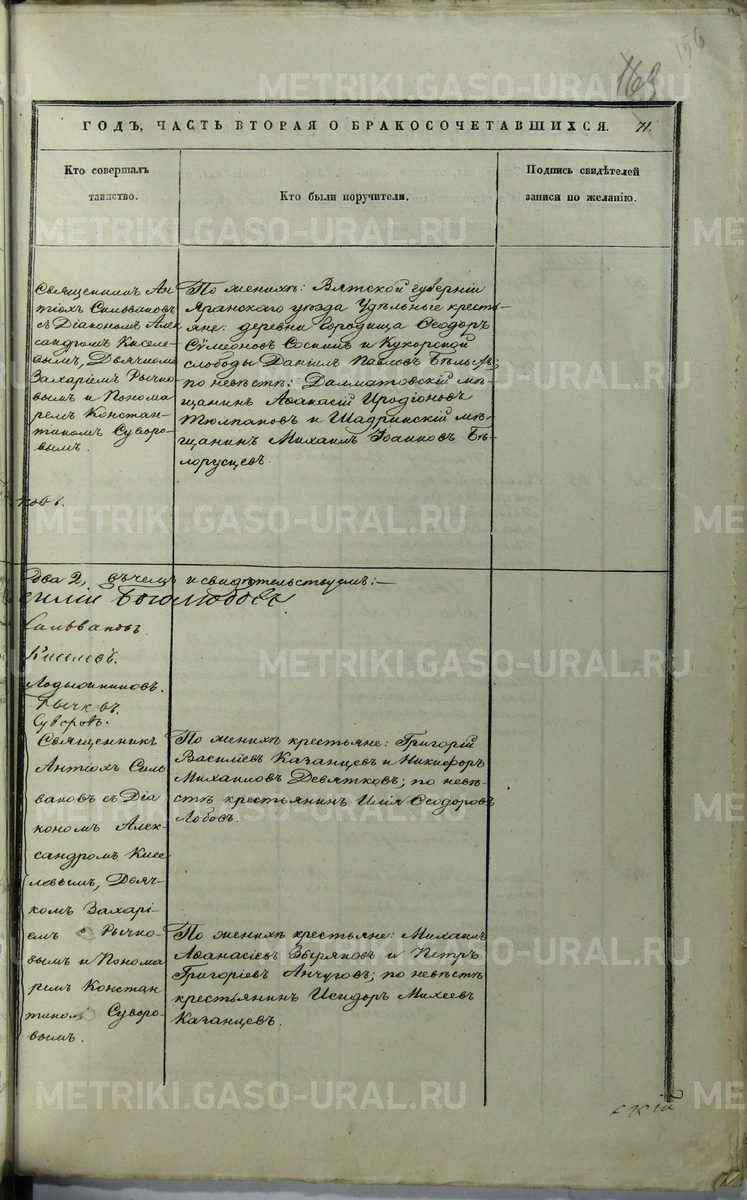 156
169
ГОДЪ, ЧАСТЬ ВТОРАЯ О БРАКОСОЧЕТАВШИХСЯ. 71.
Кто совершалъ
таинство.
Кто были поручители.
Подпись свидѣтелей
записи по желанію.
Священникъ Ан
тіохъ Сильвановъ
съ Діакономъ Алек
сандромъ Киселе-
вымъ, Дьячкомъ
Захаріемъ Рычко
вымъ и Понома
ремъ Констан-
тиномъ Суворо-
вымъ.
По женихѣ: Вятской губерніи
Яранскаго уѣзда Удѣльные кресть-
яне: деревни Городища Ѳеодоръ
Сѵмеоновъ и Кукарской
слободы Даніилъ Павловъ
по невѣстѣ: Далматовскій мѣ-
щанинъ Аѳанасій Иродіоновъ
Тюлпановъ и Шадринскій мѣ-
щанинъ Михаилъ Іоанновъ Бѣ-
лорусцевъ.
ковъ.
два 2, съ чемъ и свидѣтельствуемъ:—
силій Боголюбовъ
Сильвановъ.
Киселевъ.
Рычковъ.
Суворовъ.
Священникъ
Антіохъ Силь
вановъ съ Діа
кономъ Алек-
сандромъ Кисе
левымъ, Дьяч-
комъ Захарі-
емъ Рычко-
вымъ и Понома
ремъ Констан
тиномъ Суворо-
вымъ.
По женихѣ крестьяне: Григорій
Василіевъ Качанцевъ и Никифоръ
Михаиловъ Девятковъ; по невѣ-
стѣ крестьянинъ Илія Ѳеодоровъ
Лобовъ.
По женихѣ крестьяне: Михаилъ
Аѳанасіевъ Зверяковъ и Петръ
Григоріевъ Анчуговъ; по невѣстѣ
крестьянинъ Исидоръ Михеевъ
Качанцевъ.
METRIKI.GASO-URAL.RU